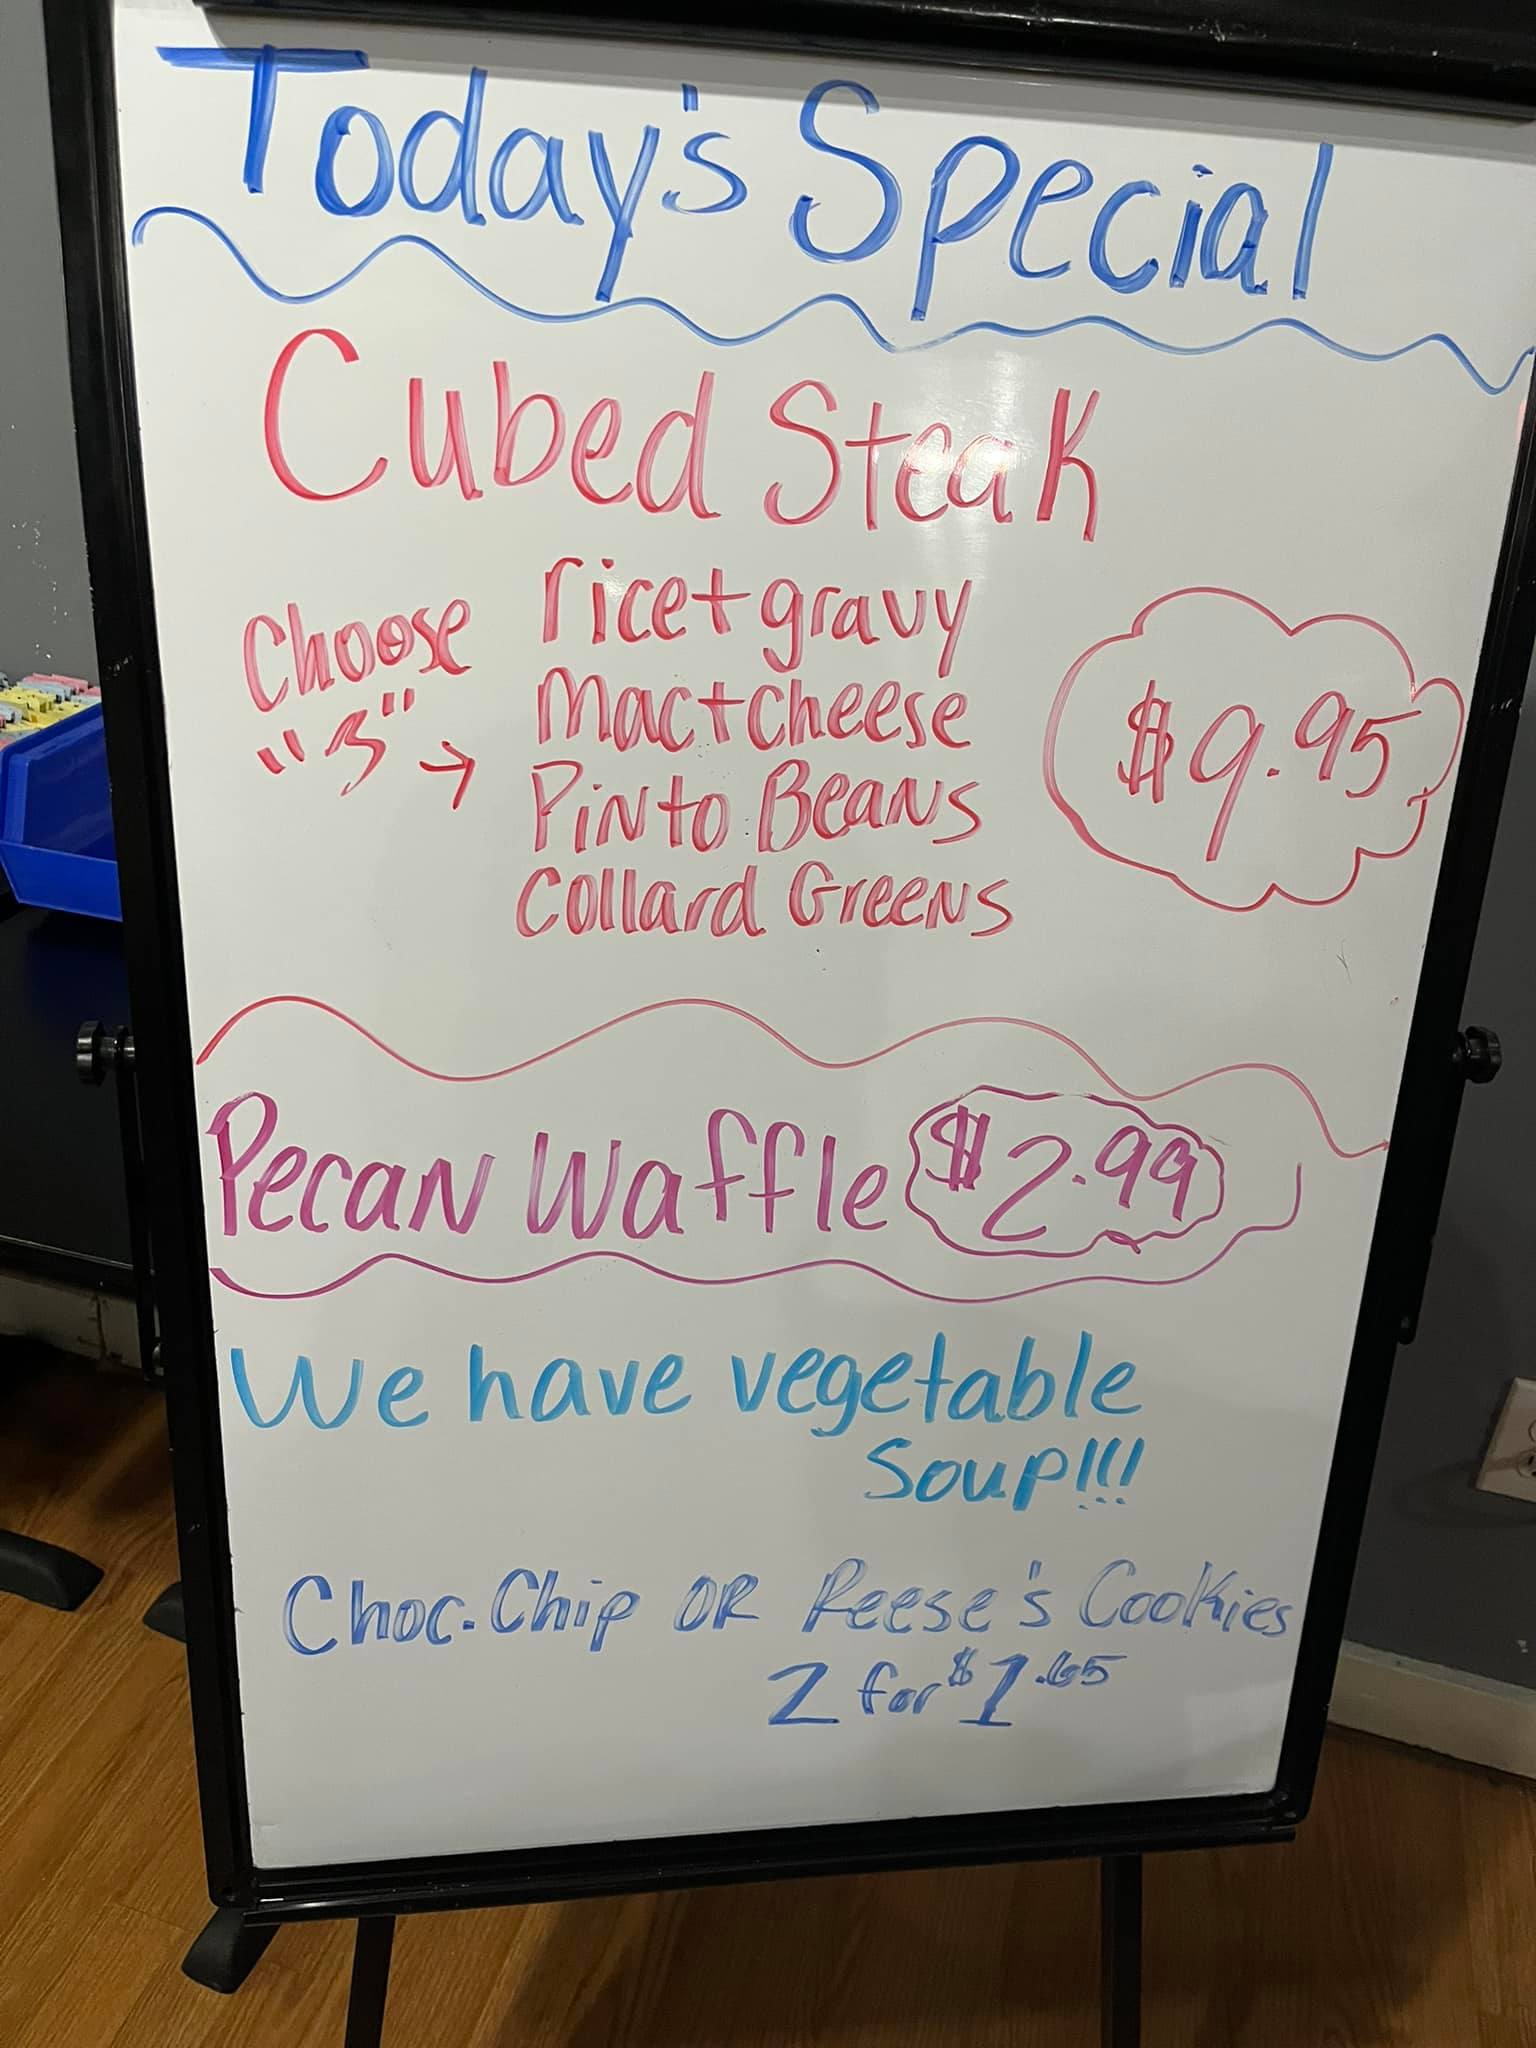 Today's Special
Cubed Steak
Choose
"3" →
rice + gravy
Mac + cheese
Pinto Beans
Collard Greens
$9.95
Pecan Waffle $2.99
We have vegetable
Soup!!!
Choc. Chip OR Reese's Cookies
2 for $1.65